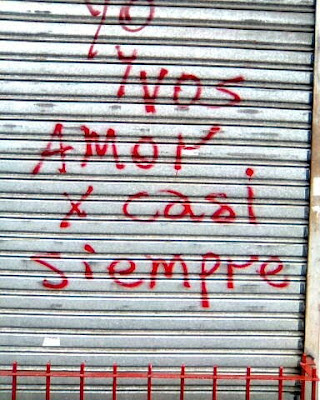 yo
y vos
AMOr
x casi
siempre